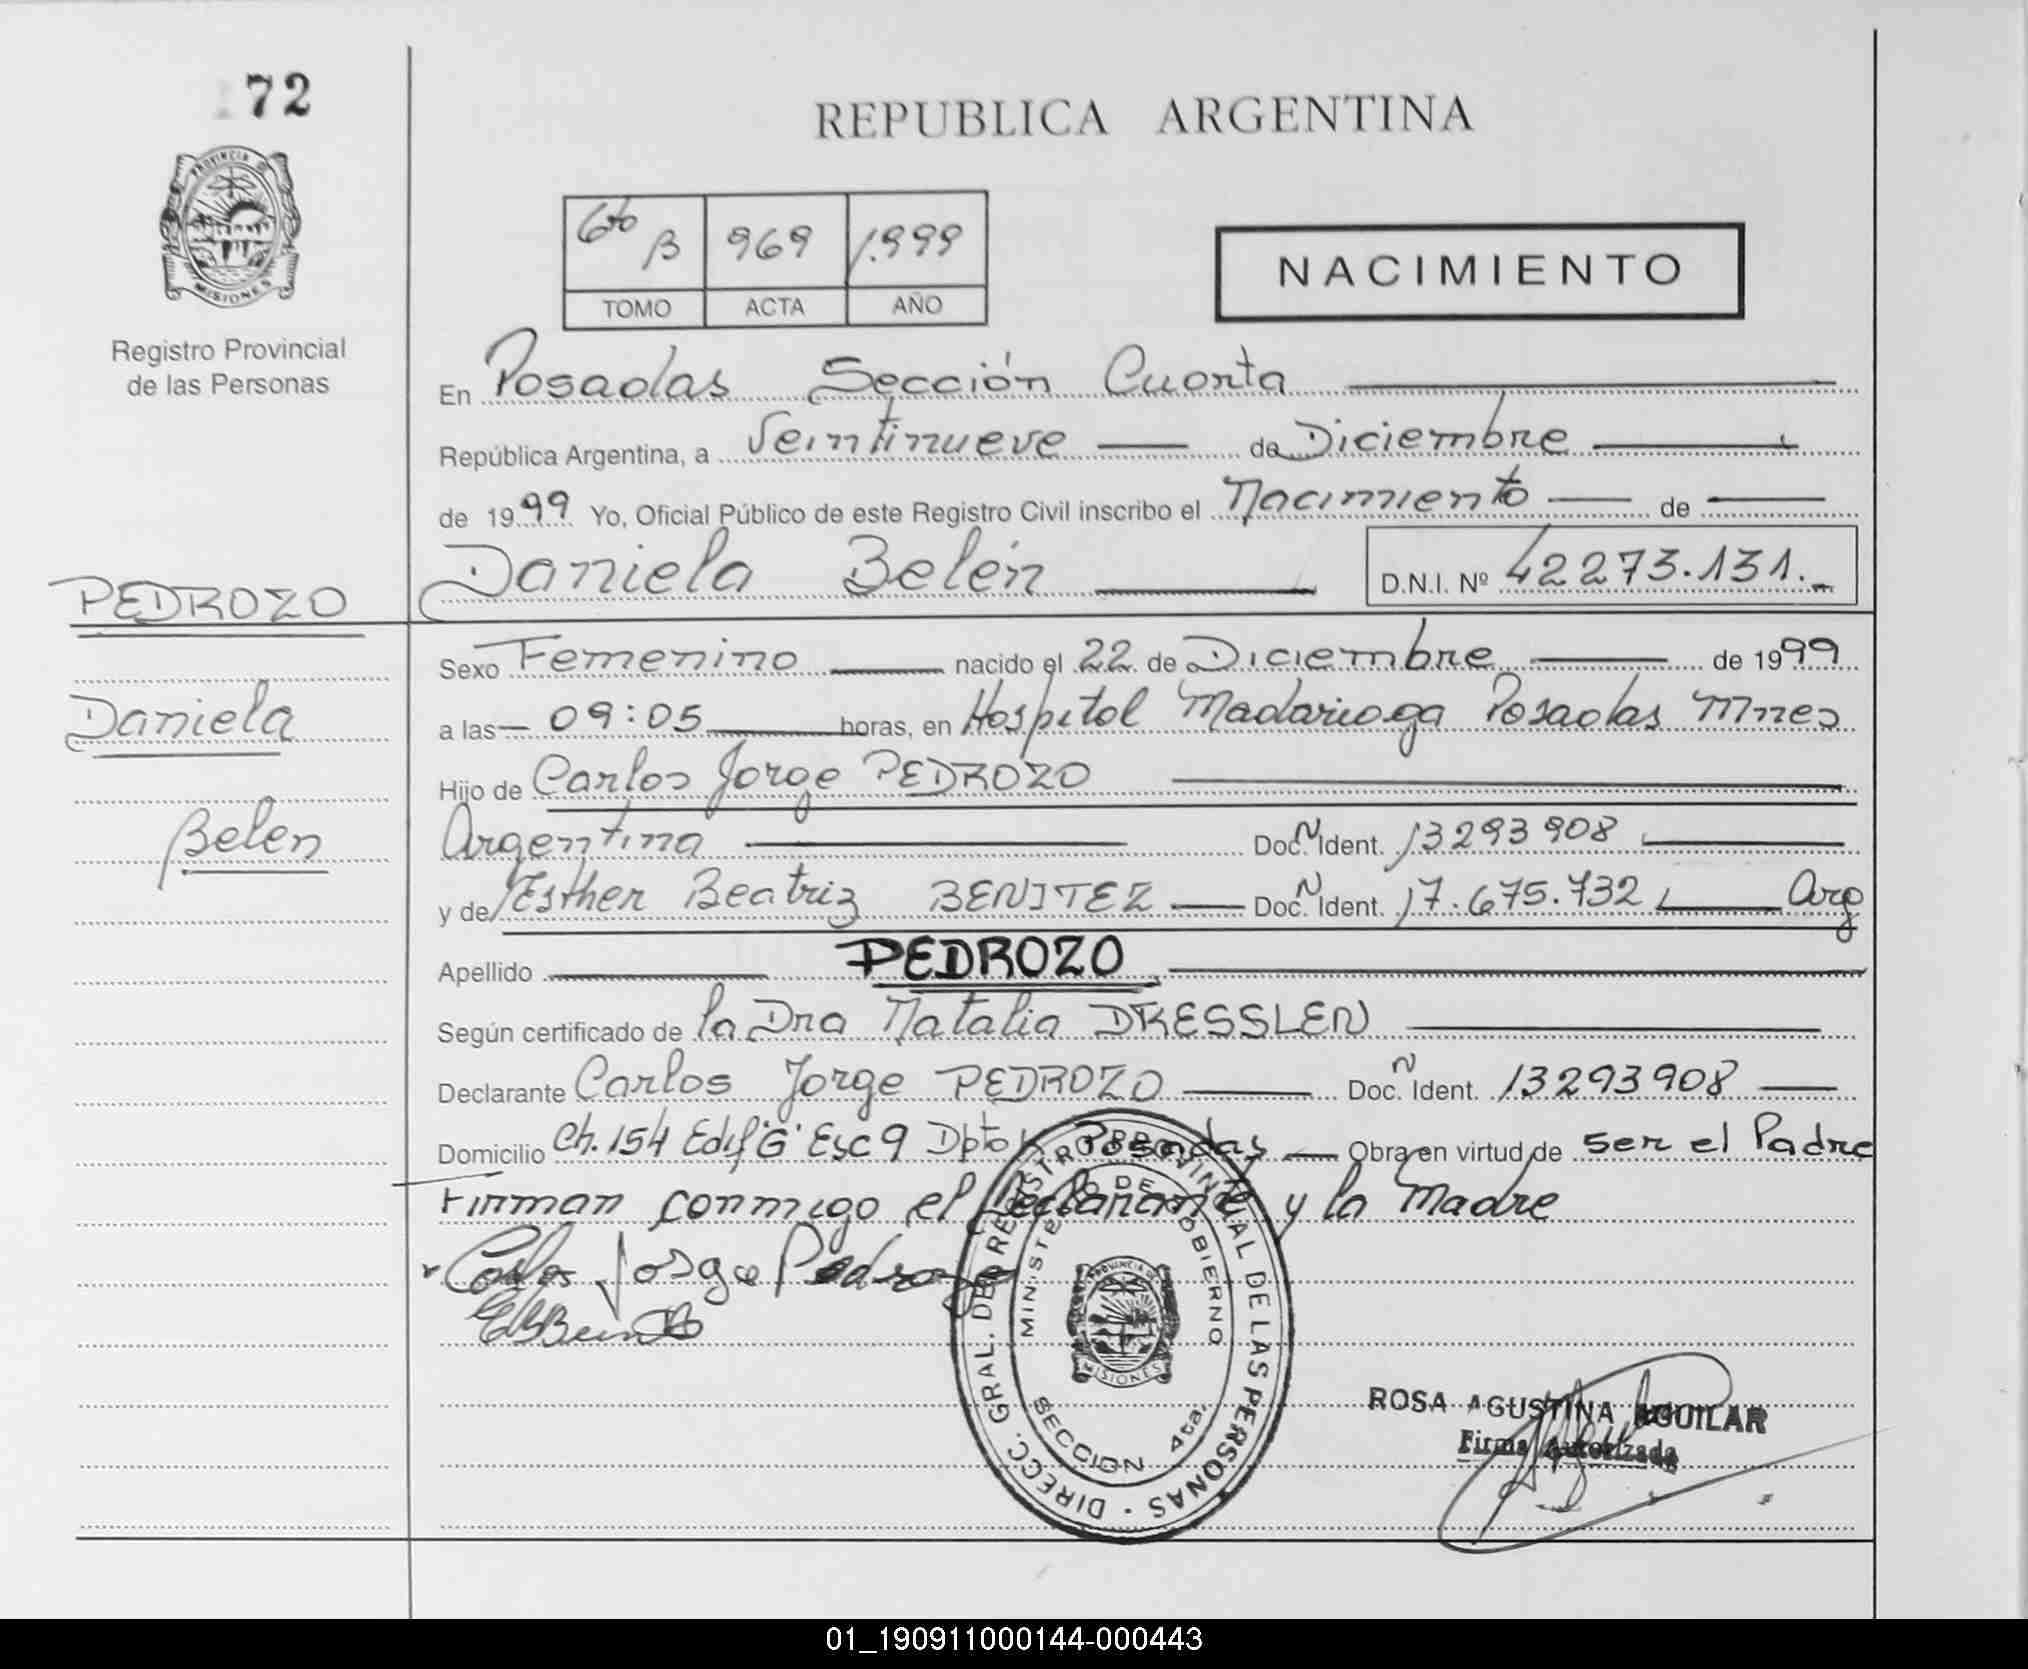 72
REPUBLICA ARGENTINA
PROVINCIA DE
MISIONES
Registro Provincial
de las Personas
6to B 969 1.999
TOMO ACTA AÑO
NACIMIENTO
En Posadas Sección Cuarta
República Argentina, a Veintinueve de Diciembre
de 1999 Yo, Oficial Público de este Registro Civil inscribo el Nacimiento de
Daniela Belén
D.N.I. Nº 42273.131.
PEDROZO
Daniela
Belen
Sexo Femenino nacido el 22 de Diciembre de 1999
a las 09:05 horas, en Hospital Madariaga Posadas Mnes
Hijo de Carlos Jorge PEDROZO
Argentina Doc. N Ident. 13293908
y de Esther Beatriz BENITEZ Doc. N Ident. 17.675.732 Arg
Apellido PEDROZO
Según certificado de la Dra Natalia DRESSLEN
Declarante Carlos Jorge PEDROZO Doc. N Ident. 13293908
Domicilio Ch. 154 Edif "G" Esc 9 Dpto Posadas Obra en virtud de ser el Padre
Firman conmigo el Declarante y la Madre
Carlos Jorge Pedrozo
DIRECC. GRAL. DEL REGISTRO PROVINCIAL DE LAS PERSONAS
MINISTERIO DE GOBIERNO
PROVINCIA DE
MISIONES
SECCION 4ta.
ROSA AGUSTINA AGUILAR
Firma Autorizada
01_190911000144-000443